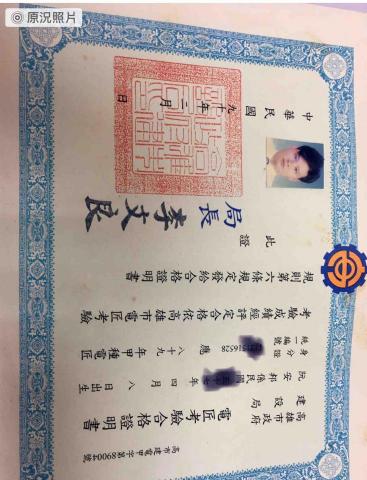 原況照片
高市建電甲字第89004號
高雄市政府
建設局
電匠考驗合格證明書
阮安邦係民國四月八日出生
身分證
統一編號
應八十九年甲種電匠
考驗成績經評定合格依高雄市電匠考驗
規則第六條規定發給合格證明書
此證
局長李文良
中華民國九十年二月日